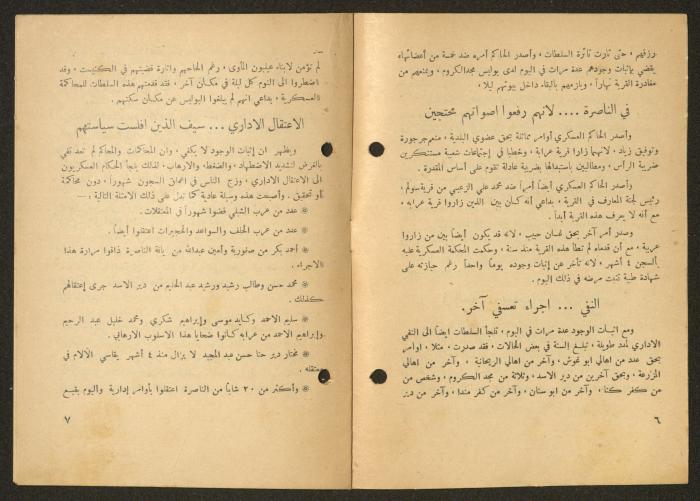 رزقهم ، حتى ثارت ثائرة السلطات ، وأصدر الحاكم أمره ضد خمسة من أعضائهاء
يقضي باثبات وجودهم عدة مرات في اليوم لدى بوليس مجد الكروم ، ويمنعهم من
مغادرة القرية نهاراً ، ويلزمهم بالبقاء داخل بيوتهم ليلا .
في الناصرة .... لانهم رفعوا اصواتهم محتجين
وأصدر الحاكم العسكري أوامر مماثلة بحق عضوي البلدية ، منعم جرجورة
وتوفيق زياد ، لانهما زارا قرية عرابة ، وخطبا في إجتماعات شعبية مستنكرين
ضريبة الرأس ، ومطالبين باستبدالها بضريبة عادلة تقوم على أساس المقدرة .
وأصدر الحاكم العسكري أيضاً أمراً ضد محمد علي الزعبي من قرية سولم ،
رئيس لجنة المعارف في القرية ، بداعي أنه كان بين الذين زاروا قرية عرابه ،
مع أنه لا يعرف هذه القرية أبداً .
وصدر أمر آخر بحق غسان حبيب ، لانه قد يكون أيضاً بين من زاروا
عربية ، مع أن قدماه لم تطأ هذه القرية منذ سنة ، وحكمت المحكمة العسكرية عليه
بالسجن ٤ أشهر ، لانه تأخر عن إثبات وجوده يوماً واحداً رغم حيازته على
شهادة طبية تثبت مرضه في ذلك اليوم .
النفي ... اجراء تعسفي آخر.
ومع اثبات الوجود عدة مرات في اليوم ، تلجأ السلطات ايضاً الى النفي
الاداري لمدد طويلة ، تبلغ السنة في بعض الحالات ، فقد صدرت ، مثلا ، اوامر
بحق عدد من اهالي ابو غوش ، وآخر من اهالي الريحانية ، وآخر من اهالي
المزرعة ، وبحق آخرين من دير الاسد ، وثلاثة من مجد الكروم ، وشخص من
من كفر كنا ، وآخر من ابو سنان ، وآخر من كفر مندا ، وآخر من دير
٦
لم تؤمن لابناء عيلبون المأوى ، رغم الحاحهم واثارة قضيتهم في الكنيست ، وقد
اضطروا الى النوم كل ليلة في مكان آخر ، فقد قدمتهم هذه السلطات للمحاكمة
العسكرية ، بداعي انهم لم يبلغوا البوليس عن مكان سكنهم .
الاعتقال الاداري ... سيف الذين افلست سياستهم
ويظهر ان إثبات الوجود لا يكفي ، وان المحاكمات والمحاكم لم تعد تفي
بالغرض لتشديد الاضطهاد ، والضغط ، والارهاب ، لذلك يلجأ الحكام العسكريون
الى الاعتقال الاداري ، وزج الناس في اعماق السجون شهوراً ، دون محاكمة
أو تحقيق . وأصبحت هذه وسيلة عادية كما تدل على ذلك الامثلة التالية :—
عدد من عرب الشبلي قضوا شهوراً في المعتقلات .
عدد من عرب الخلف والسواعد والحجيرات اعتقلوا أيضاً .
أحمد بكر من صفورية وأمين عبدالله من يافة الناصرة ذاقوا مرارة هذا
الاجراء .
محمد حسن وطالب رشيد ورشيد عبد الحليم من دير الاسد جرى إعتقالهم
كذلك .
سليم الاحمد وكايد موسى وإبراهيم شكري ومحمد خليل عبد الرحيم
وإبراهيم الاحمد من عرابه كانوا ضحايا هذا الاسلوب الارهابي .
مختار دير حنا حسن عبد المجيد لا يزال منذ ٤ أشهر يقاسي الآلام في
معتقله .
وأكثر من ٢٠ شاباً من الناصرة اعتقلوا بأوامر إدارية واليوم يقبع
٧